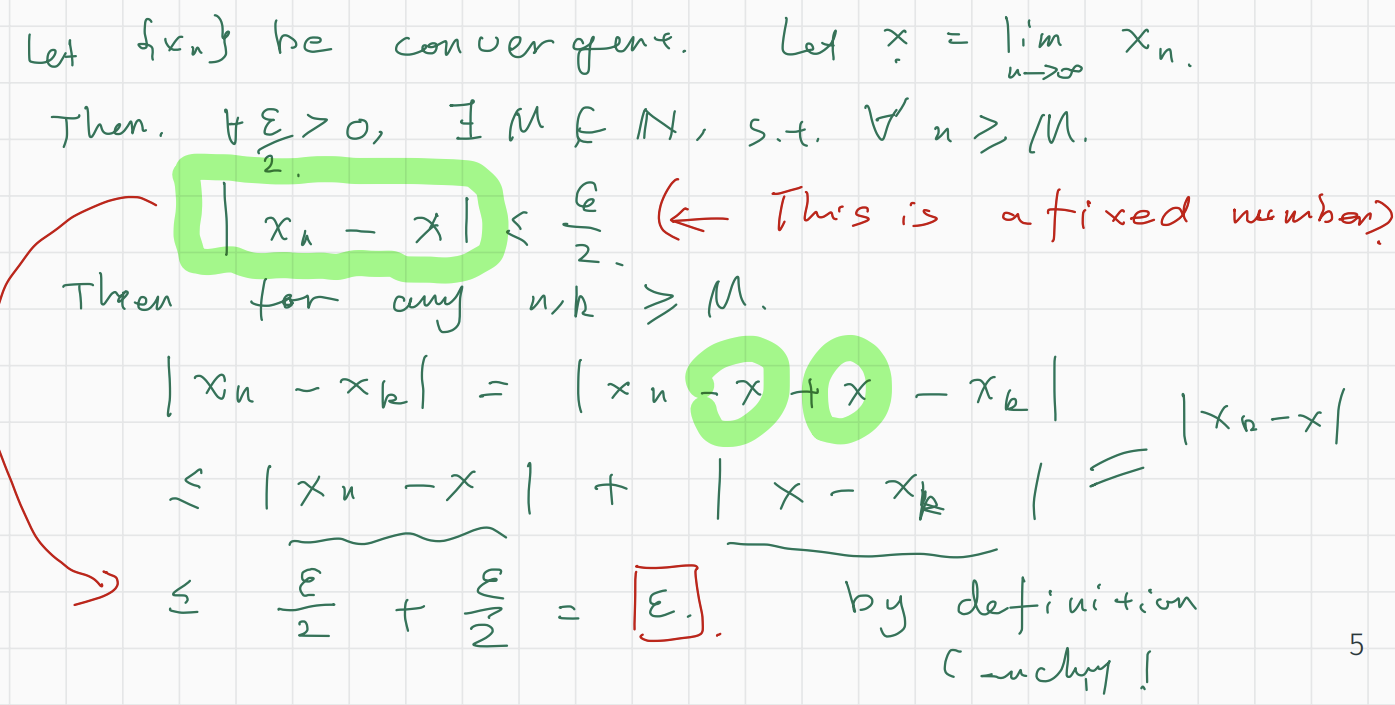 Let {xₙ} be convergent. Let x = lim n→∞ xₙ.
Then. ∀ ε/2 > 0, ∃ M ∈ ℕ, s.t. ∀ n ≥ M.
|xₙ − x| ≤ ε/2. (← This is a fixed number)
Then for any n, k ≥ M.
|xₙ − xₖ| = |xₙ − x + x − xₖ|
≤ |xₙ − x| + |x − xₖ| = |xₖ − x|
≤ ε/2 + ε/2 = ε. by definition
Cauchy!
5